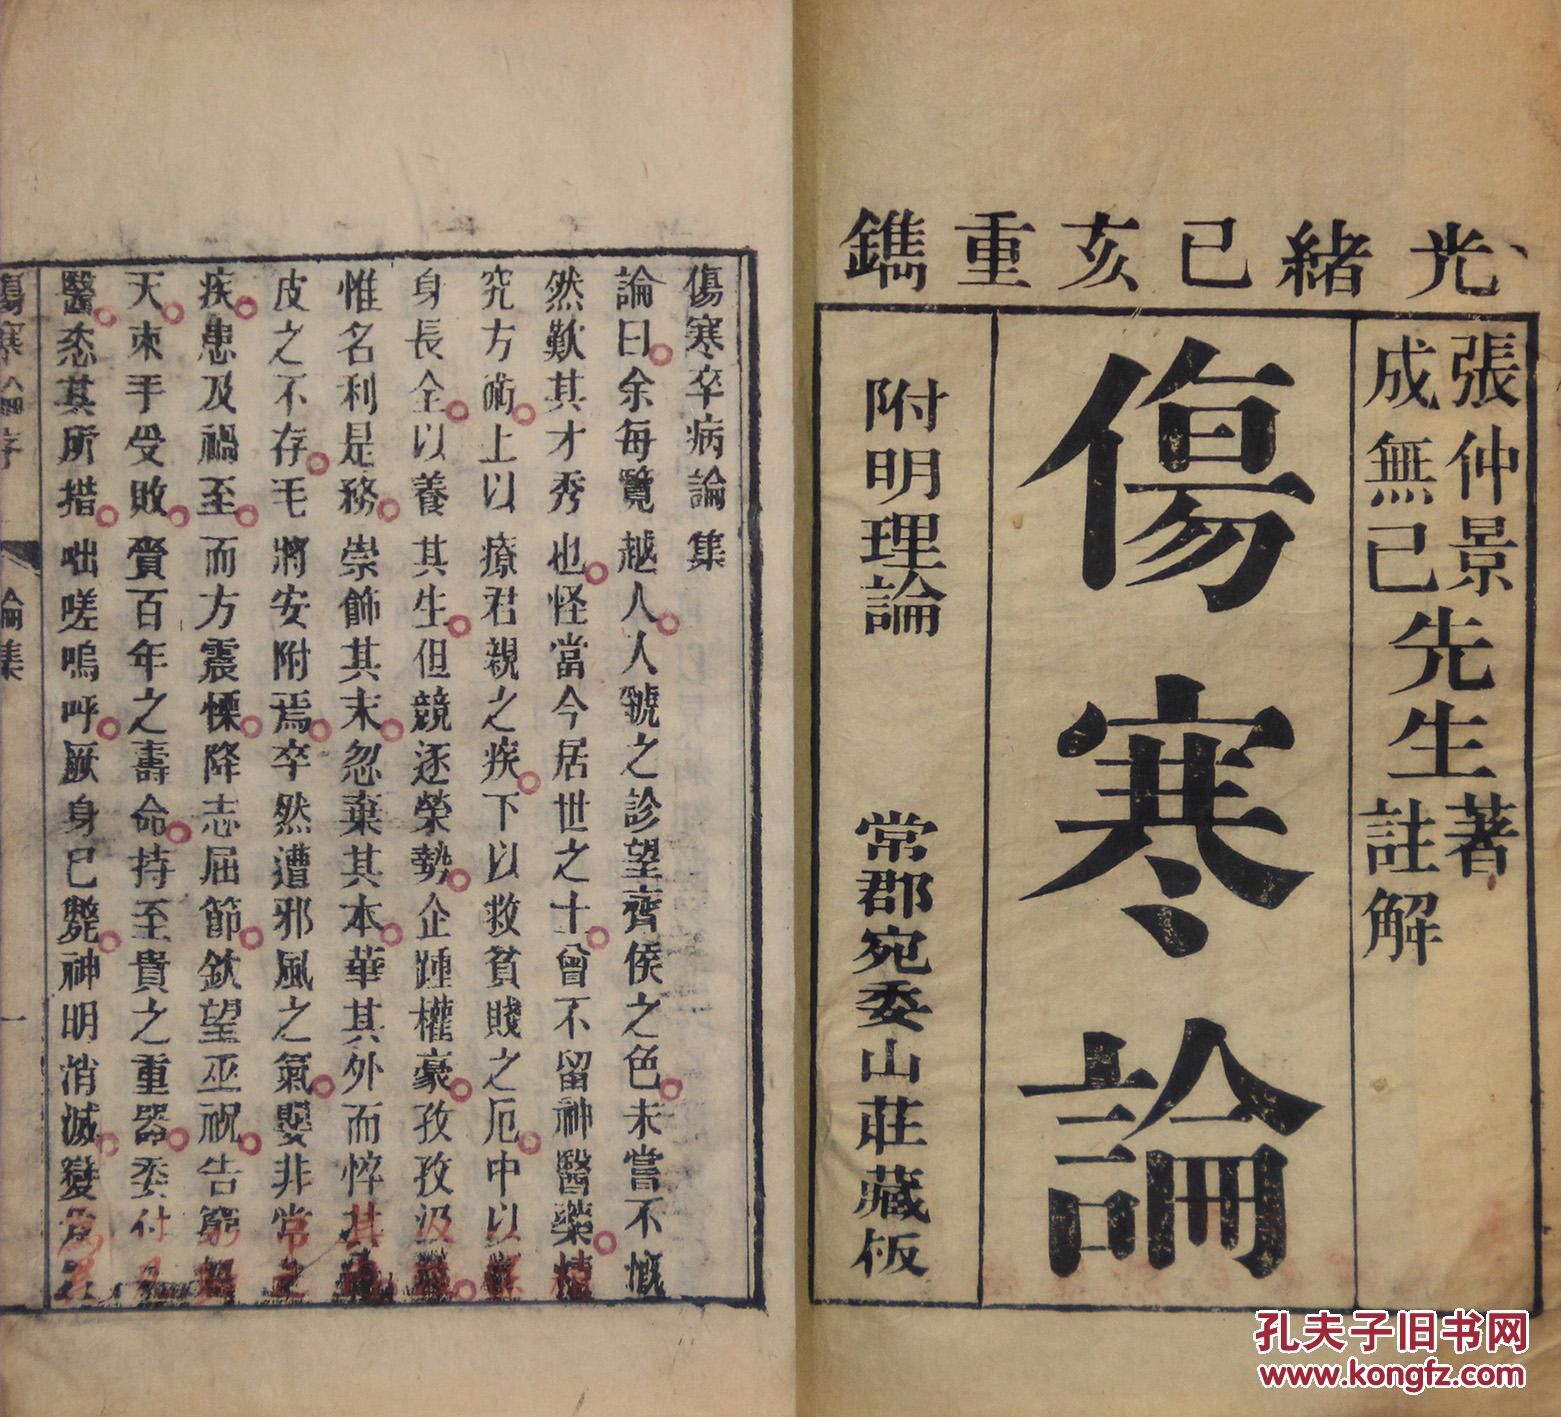 光緒己亥重鐫
張仲景
成無己
先生
著
註解
傷寒論
附明理論
常郡宛委山莊藏板
傷寒卒病論集
論曰余每覽越人入虢之診望齊侯之色未嘗不慨
然歎其才秀也怪當今居世之士曾不留神醫藥精
究方術上以療君親之疾下以救貧賤之厄中以
身長全以養其生但競逐榮勢企踵權豪孜孜汲
惟名利是務崇飾其末忽棄其本華其外而悴其
皮之不存毛將安附焉卒然遭邪風之氣嬰非常之
疾患及禍至而方震慄降志屈節欽望巫祝告窮
天束手受敗賫百年之壽命持至貴之重器委付
醫恣其所措咄嗟嗚呼厥身已斃神明消滅變為
論集
一
孔夫子旧书网
www.kongfz.com